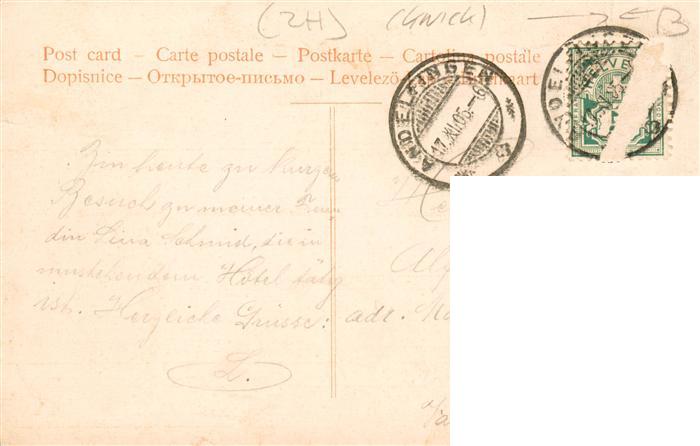 (ZH)
Post card – Carte postale – Postkarte – Cartolina postale
Dopisnice – Открытое-письмо – Levelező
ANDELFINGEN
17.XII.05.–6
HELVE
Bin heute zu kurzem
Besuch zu meiner Freun
din Lina Schmid, die in
nustehendem Hôtel tätig
ist. Herzliche Grüsse:
L.
Al
adr.